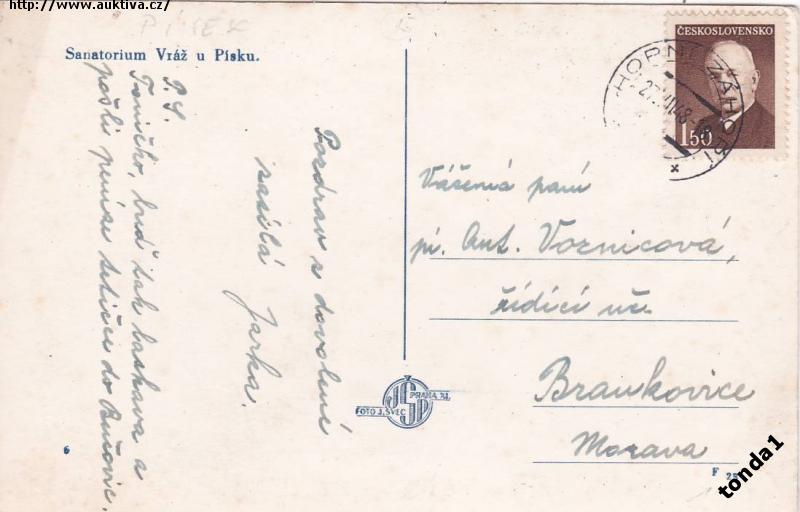 http://www.auktiva.cz/
PISEK
Sanatorium Vráž u Písku.
P.S.
Toničko, buď tak laskava a
pošli peníze tetičce do Bučovic.
Pozdrav z dovolené
zasílá Jarka.
ČESKOSLOVENSKO
1.50
HORNÍ ZÁHOŘÍ
Vážená paní
pí. Ant. Vornicová,
řídící uč.
Brankovice
Morava
JŠP
PRAHA XI.
FOTO J. ŠVEC
6
F 25
tonda1